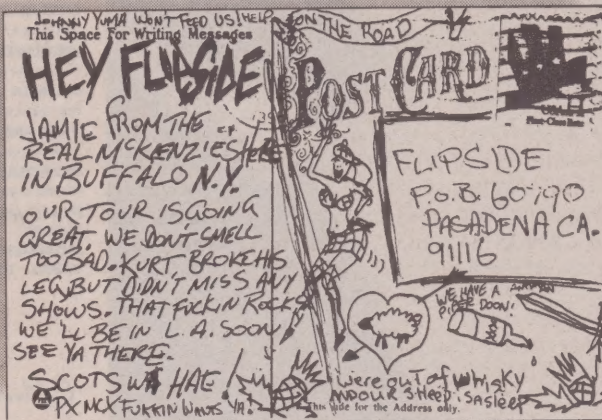 JOHNNY YUMA WON'T FEED US! HELP
This Space For Writing Messages
HEY FLIPSIDE
JAMIE FROM THE
REAL McKENZIES HERE
IN BUFFALO N.Y.
OUR TOUR IS GOING
GREAT. WE DON'T SMELL
TOO BAD. KURT BROKE HIS
LEG, BUT DIDN'T MISS ANY
SHOWS. THAT FUCKIN ROCKS
WE'LL BE IN L.A. SOON,
SEE YA THERE.
SCOTS WA HAE!
PX MCX FUKKIN WANTS YA!
ON THE ROAD
POST CARD
First-Class Rate
FLIPSIDE
P.O.B 60790
PASADENA CA.
91116
WE HAVE A
PIPER DOON!
Were out of whisky
AND OUR SHEEP IS ASLEEP
This side for the Address only.